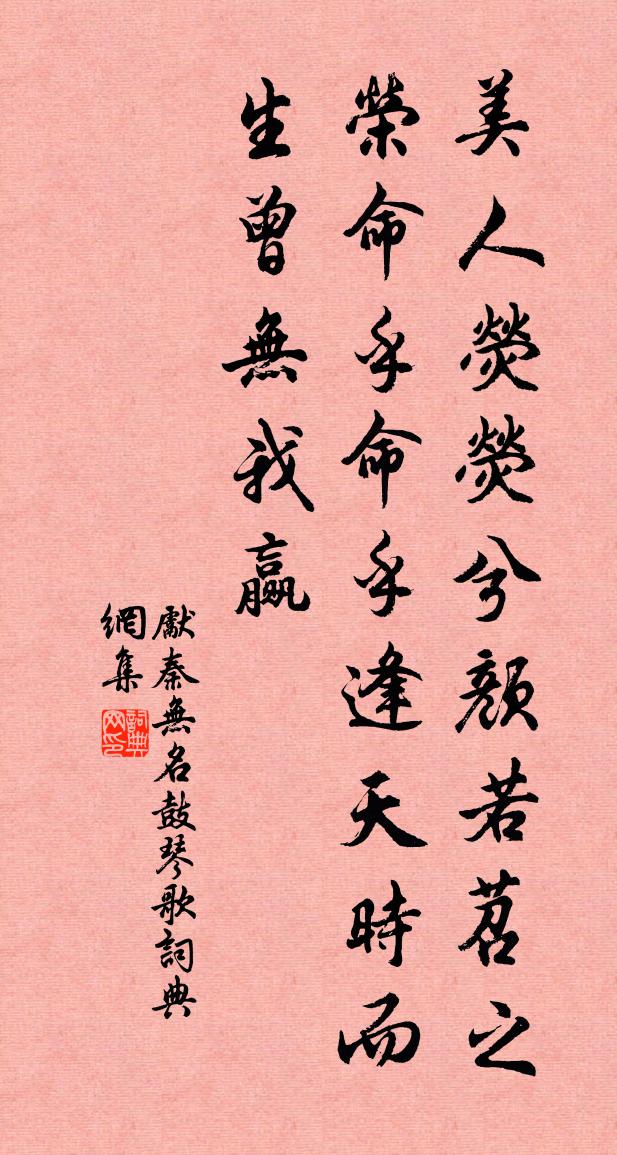 美人熒熒兮顏若苕之
榮命乎命乎逢天時而
生曾無我嬴
獻秦無名鼓琴歌詞典
網集
詞典網印